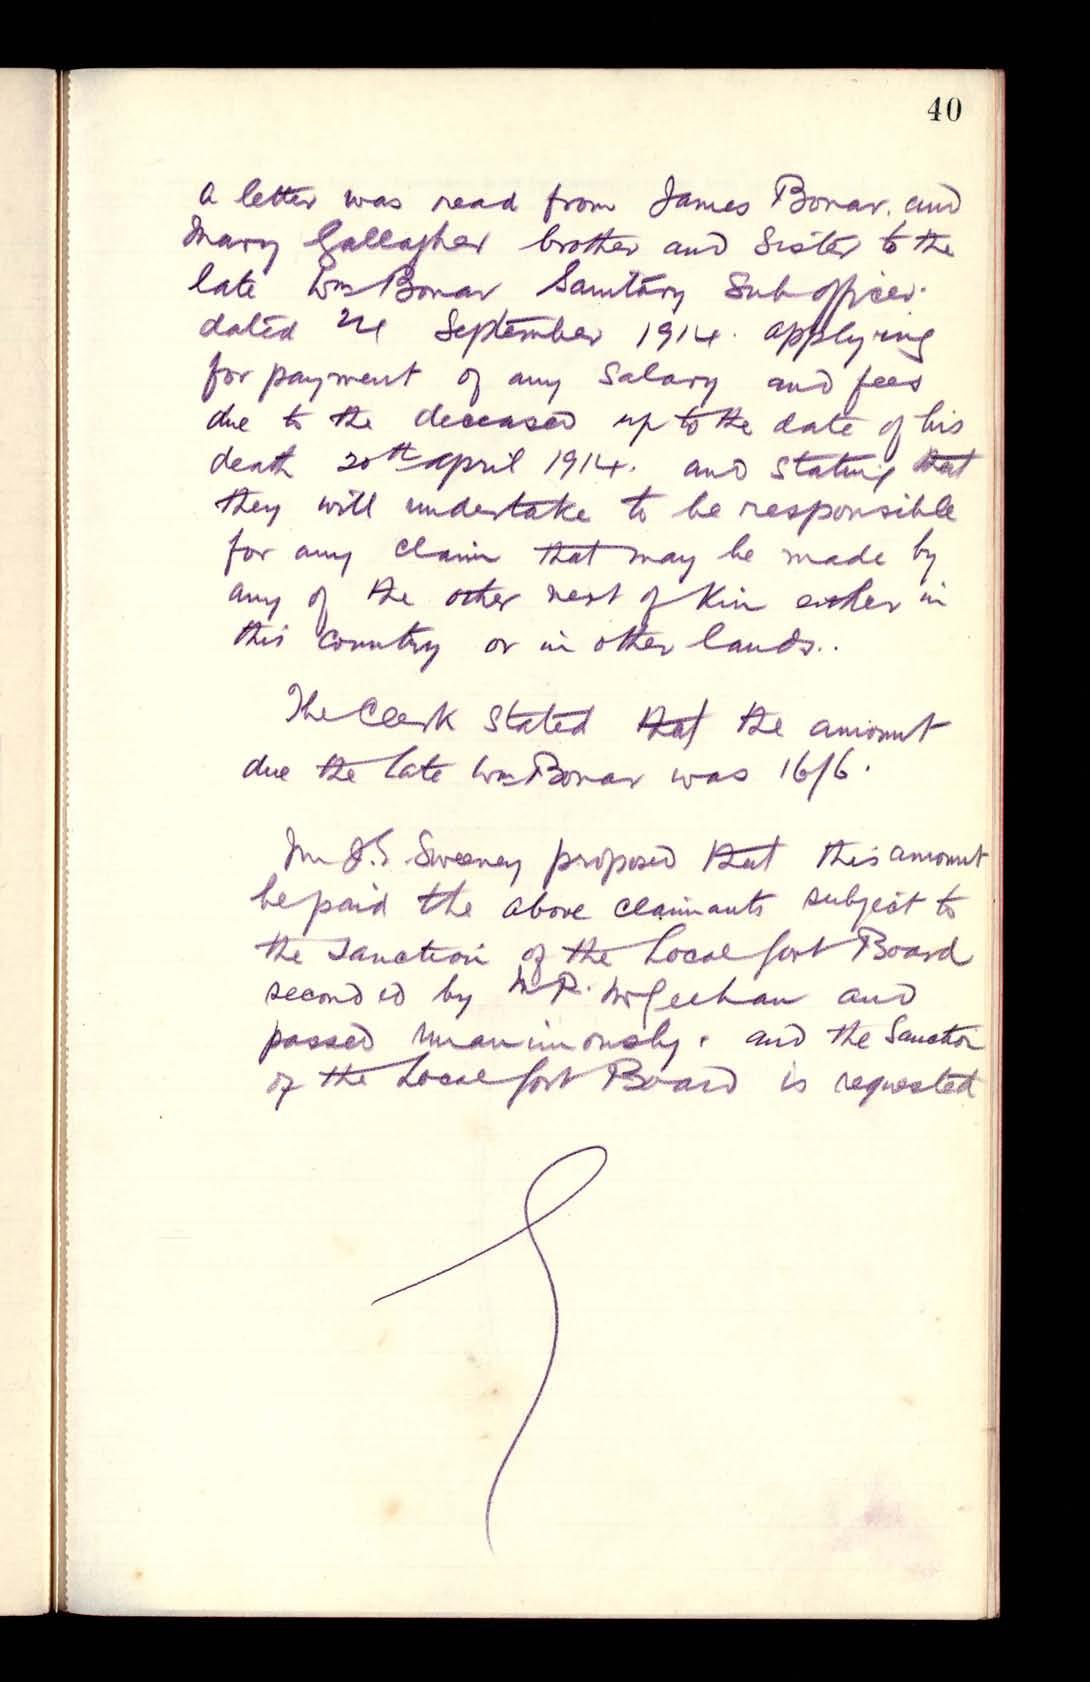 40
A letter was read from James Bonar. and
Mary Gallagher brother and Sister to the
late Wm Bonar Sanitary Sub officer.
dated September 1914. applying
for payment of any Salary and fees
due to the deceased up to the date of his
death 20th April 1914. and stating that
they will undertake to be responsible
for any claim that may be made by
any of the other next of Kin either in
this country or in other lands..
The Clerk Stated that the amount
due the late Wm Bonar was 16/6.
Mr Sweeney proposed that this amount
be paid the above claimants subject to
the sanction of the Local Govt Board
seconded by Mr P. McGeehan and
passed unanimously. and the Sanction
of the Local Govt Board is requested